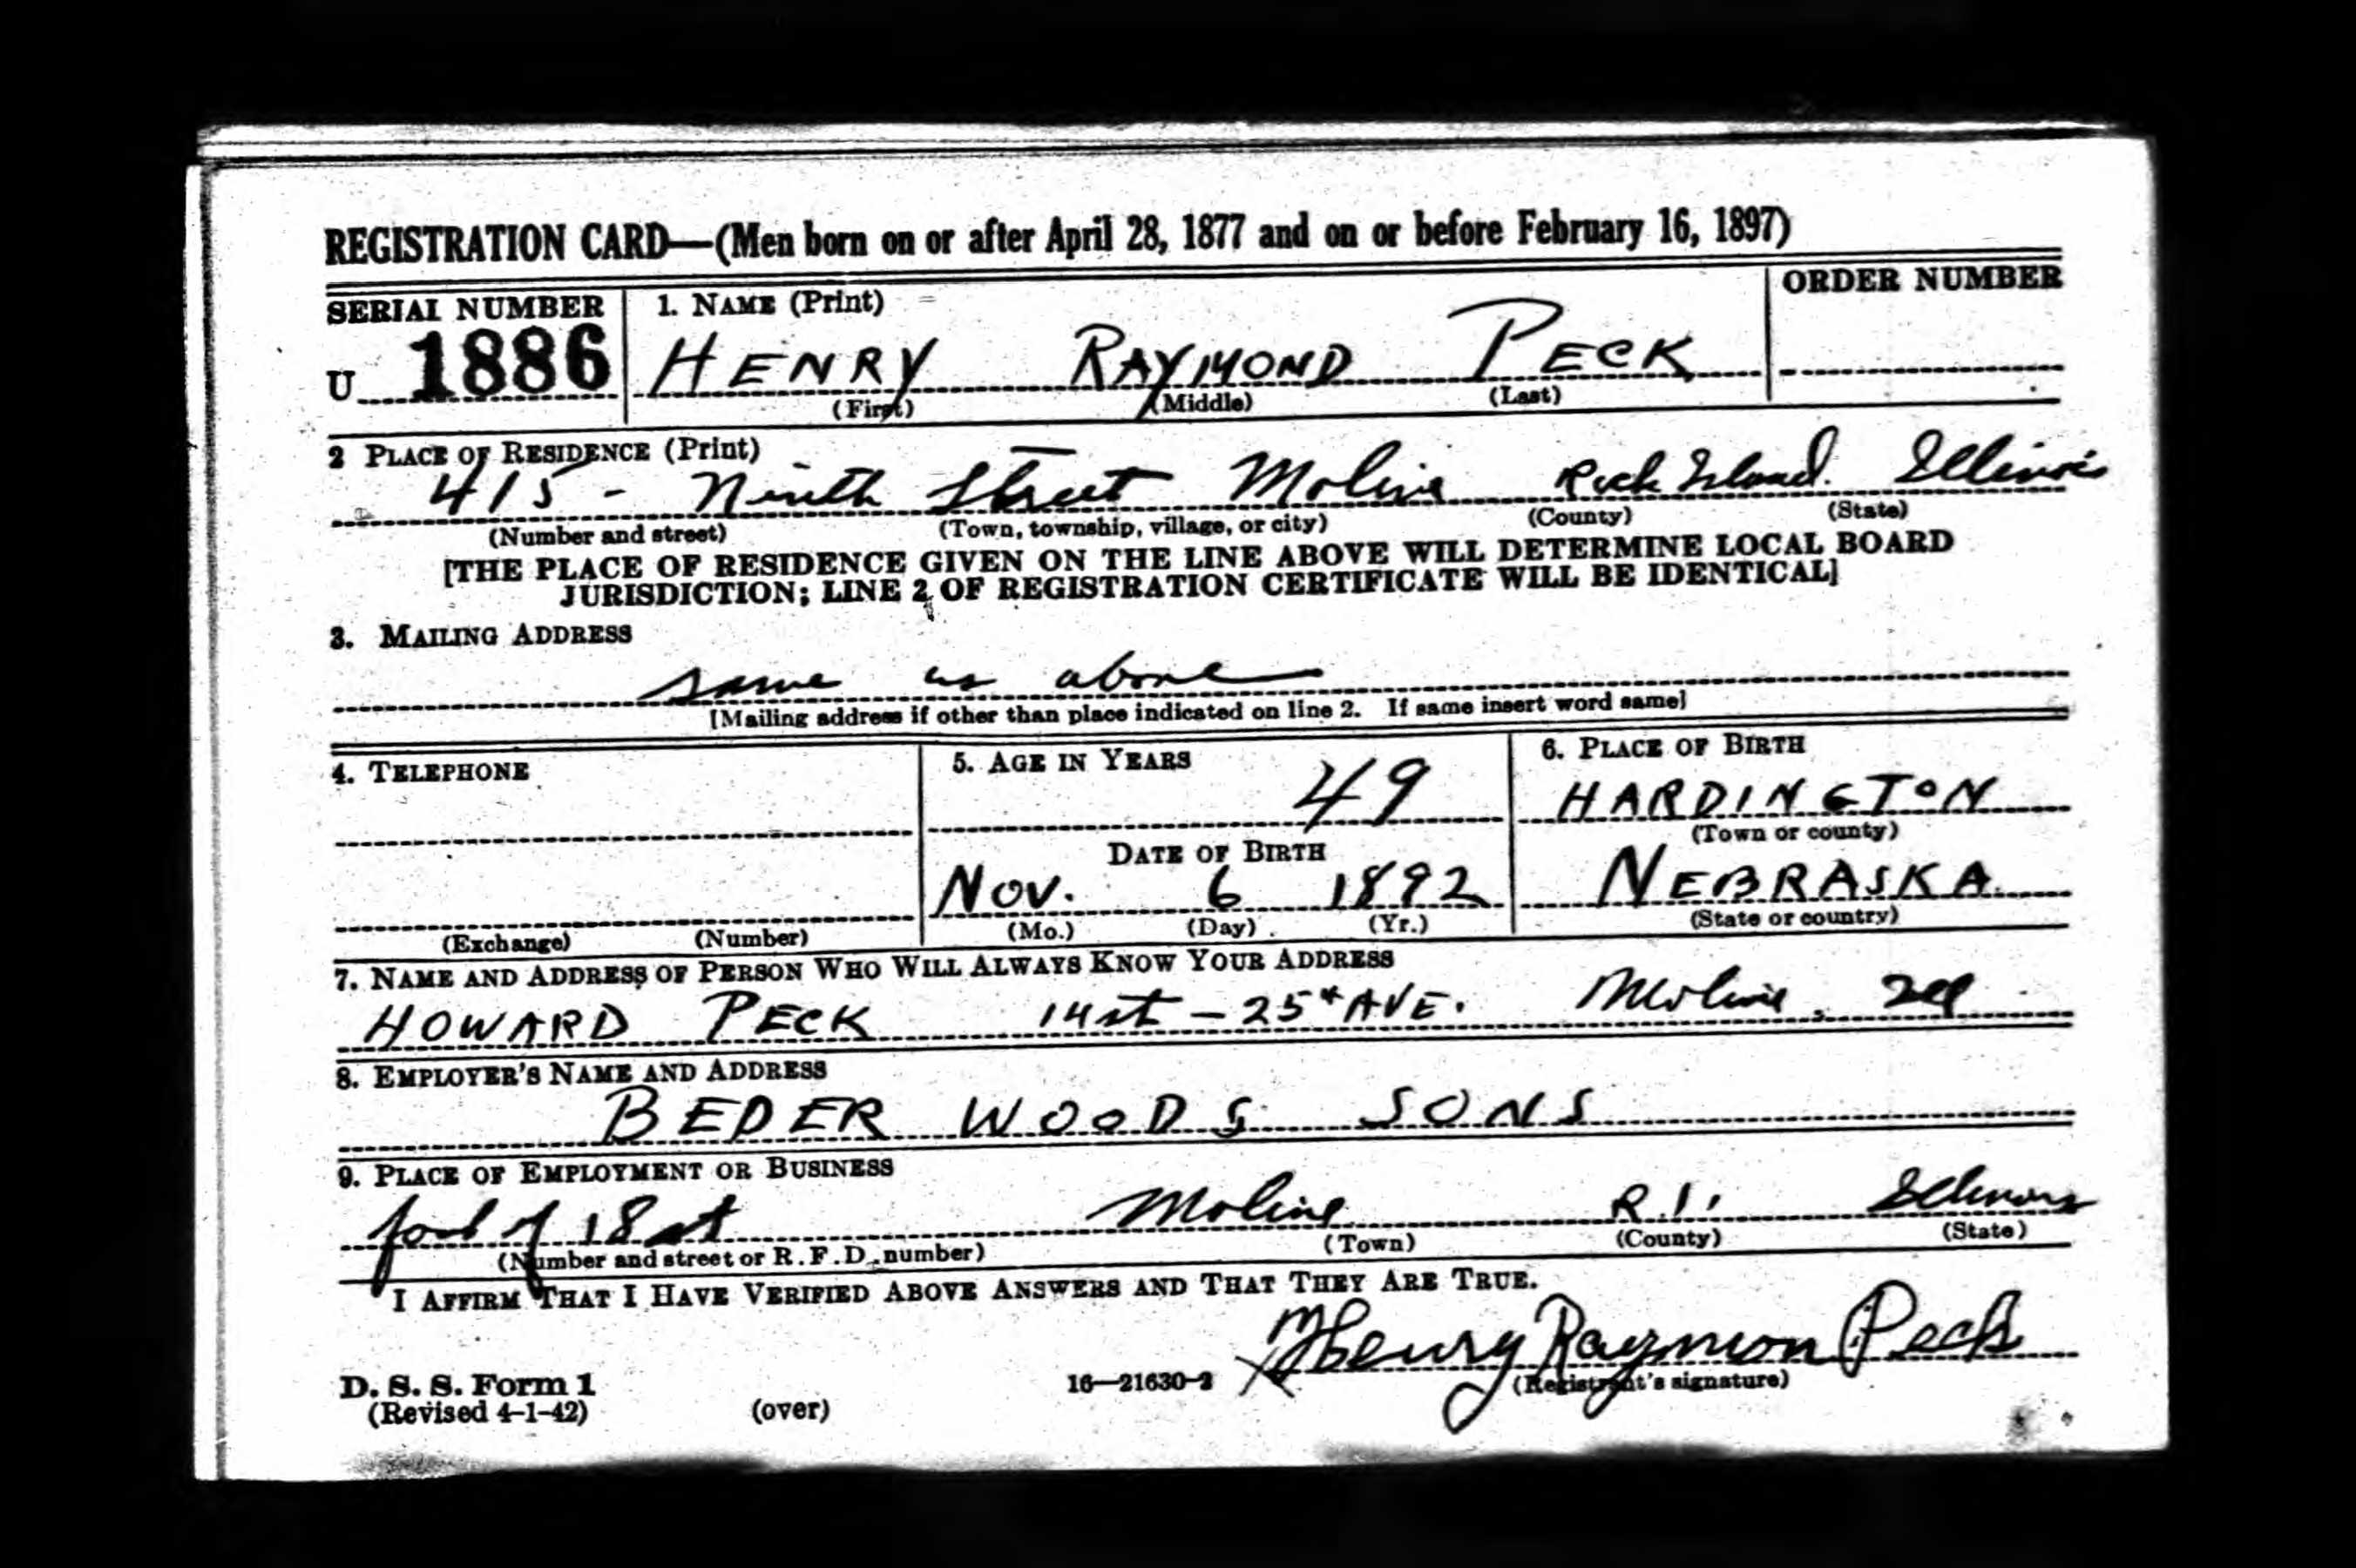 REGISTRATION CARD—(Men born on or after April 28, 1877 and on or before February 16, 1897)
SERIAL NUMBER 1. NAME (Print) ORDER NUMBER
U 1886 HENRY RAYMOND PECK
(First) (Middle) (Last)
2 PLACE OF RESIDENCE (Print)
415 - Ninth Street Moline Rock Island. Illinois
(Number and street) (Town, township, village, or city) (County) (State)
[THE PLACE OF RESIDENCE GIVEN ON THE LINE ABOVE WILL DETERMINE LOCAL BOARD
JURISDICTION; LINE 2 OF REGISTRATION CERTIFICATE WILL BE IDENTICAL]
3. MAILING ADDRESS
same as above
[Mailing address if other than place indicated on line 2. If same insert word same]
4. TELEPHONE 5. AGE IN YEARS 6. PLACE OF BIRTH
49 HARDINGTON
(Town or county)
DATE OF BIRTH
Nov. 6 1892 NEBRASKA
(Exchange) (Number) (Mo.) (Day) (Yr.) (State or country)
7. NAME AND ADDRESS OF PERSON WHO WILL ALWAYS KNOW YOUR ADDRESS
HOWARD PECK 14 st - 25th AVE. Moline, Ill
8. EMPLOYER'S NAME AND ADDRESS
BEDER WOODS SONS
9. PLACE OF EMPLOYMENT OR BUSINESS
of 18 st Moline R.I. Illinois
(Number and street or R.F.D. number) (Town) (County) (State)
I AFFIRM THAT I HAVE VERIFIED ABOVE ANSWERS AND THAT THEY ARE TRUE.
X Henry Raymon Peck
D. S. S. Form 1 16—21630-2 (Registrant's signature)
(Revised 4-1-42) (over)